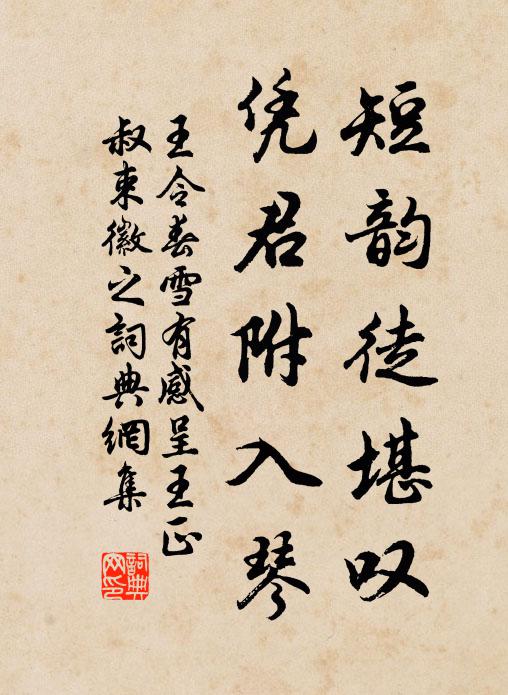 短韵徒堪叹
凭君附入琴
王令春雪有感呈王正
叔束徽之詞典網集
詞典网印